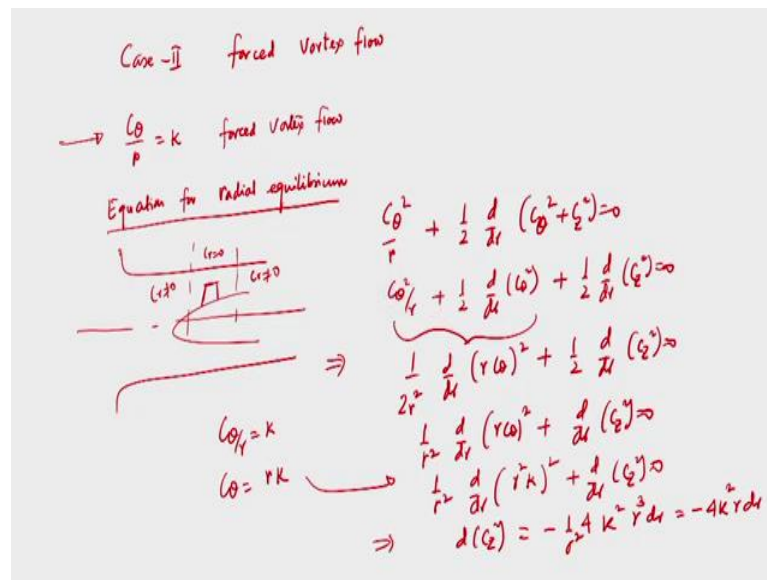 Case-II forced Vortex flow
→ Cθ/r = K forced Vortex flow
Equation for radial equilibrium
Cθ²/r + 1/2 d/dr (Cθ²+Cz²)=0
Cr≠0 Cr=0 Cr≠0
Cθ²/r + 1/2 d/dr (Cθ²) + 1/2 d/dr (Cz²)=0
⇒ 1/2r² d/dr (rCθ)² + 1/2 d/dr (Cz²)=0
1/r² d/dr (rCθ)² + d/dr (Cz²)=0
Cθ/r = K
Cθ = rK
1/r² d/dr (r²K)² + d/dr (Cz²)=0
⇒ d(Cz²) = -1/r² 4 K² r³ dr = -4K² r dr